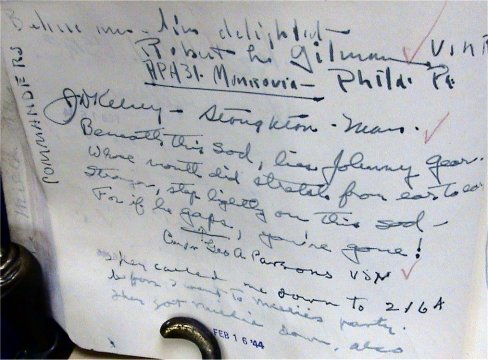 Believe me - I'm delighted -
Robert L. Gilman VSNR
APA31. Monrovia - Phila. Pa.
COMMANDERS
J W Kelsey - Stoughton - Mass.
Beneath this sod, lies Johnny Gear.
Whose mouth did stretch from ear to ear
Stranger, step lightly on this sod -
For if he gaps, you're gone!
Capt Geo A Parsons VSN
They called me down to 216A
before I went to party.
They got down, also
FEB 16 '44